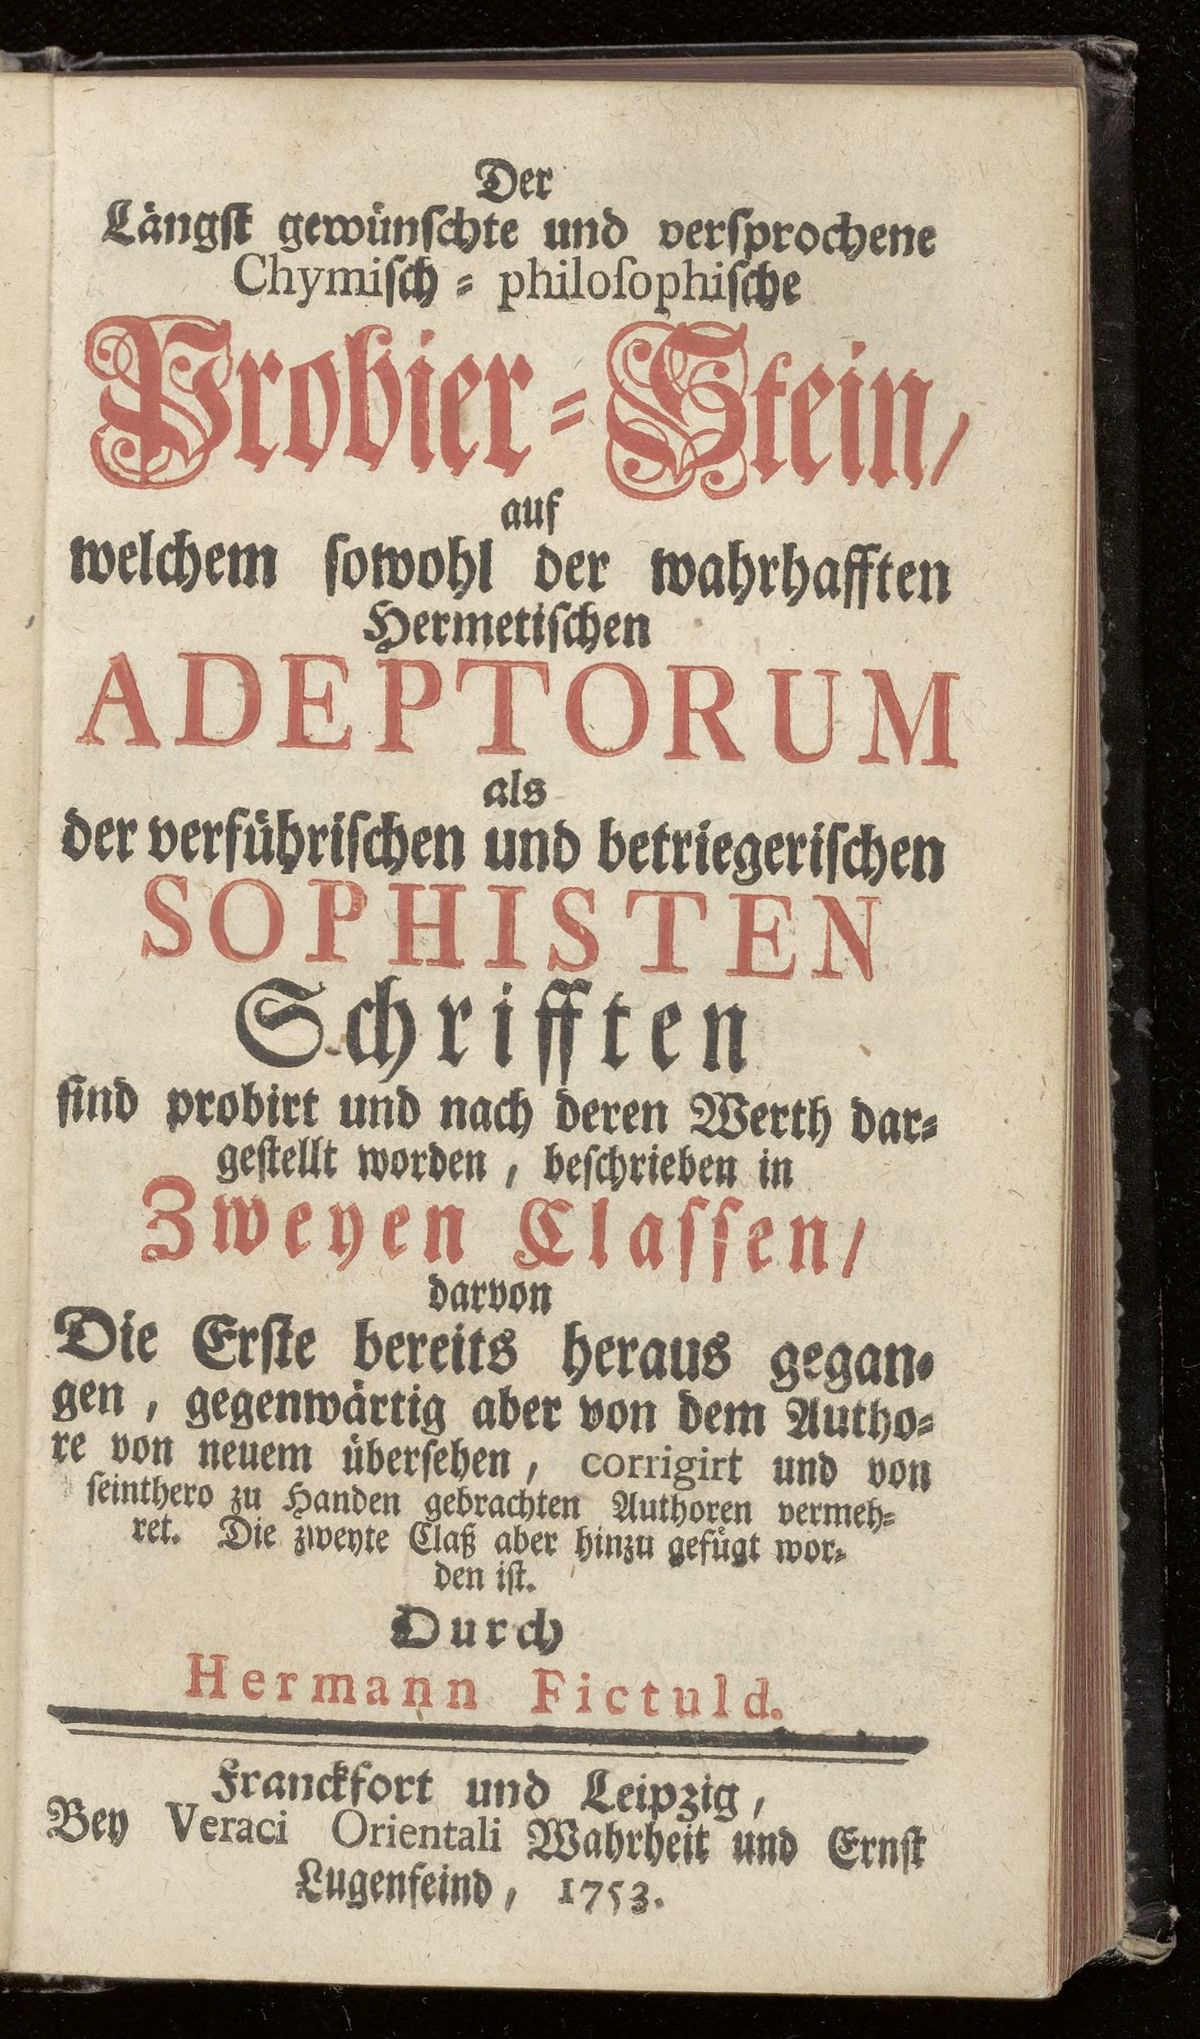 Der
Längst gewünschte und versprochene
Chymisch = philosophische
Probier=Stein/
auf
welchem sowohl der wahrhafften
Hermetischen
ADEPTORUM
als
der verführischen und betriegerischen
SOPHISTEN
Schrifften
sind probirt und nach deren Werth dar=
gestellt worden, beschrieben in
Zweyen Classen/
darvon
Die Erste bereits heraus gegan=
gen, gegenwärtig aber von dem Autho=
re von neuem übersehen, corrigirt und von
seinthero zu Handen gebrachten Authoren vermeh=
ret. Die zweyte Claß aber hinzu gefügt wor=
den ist.
Durch
Hermann Fictuld.
Franckfort und Leipzig,
Bey Veraci Orientali Wahrheit und Ernst
Lugenfeind, 1753.